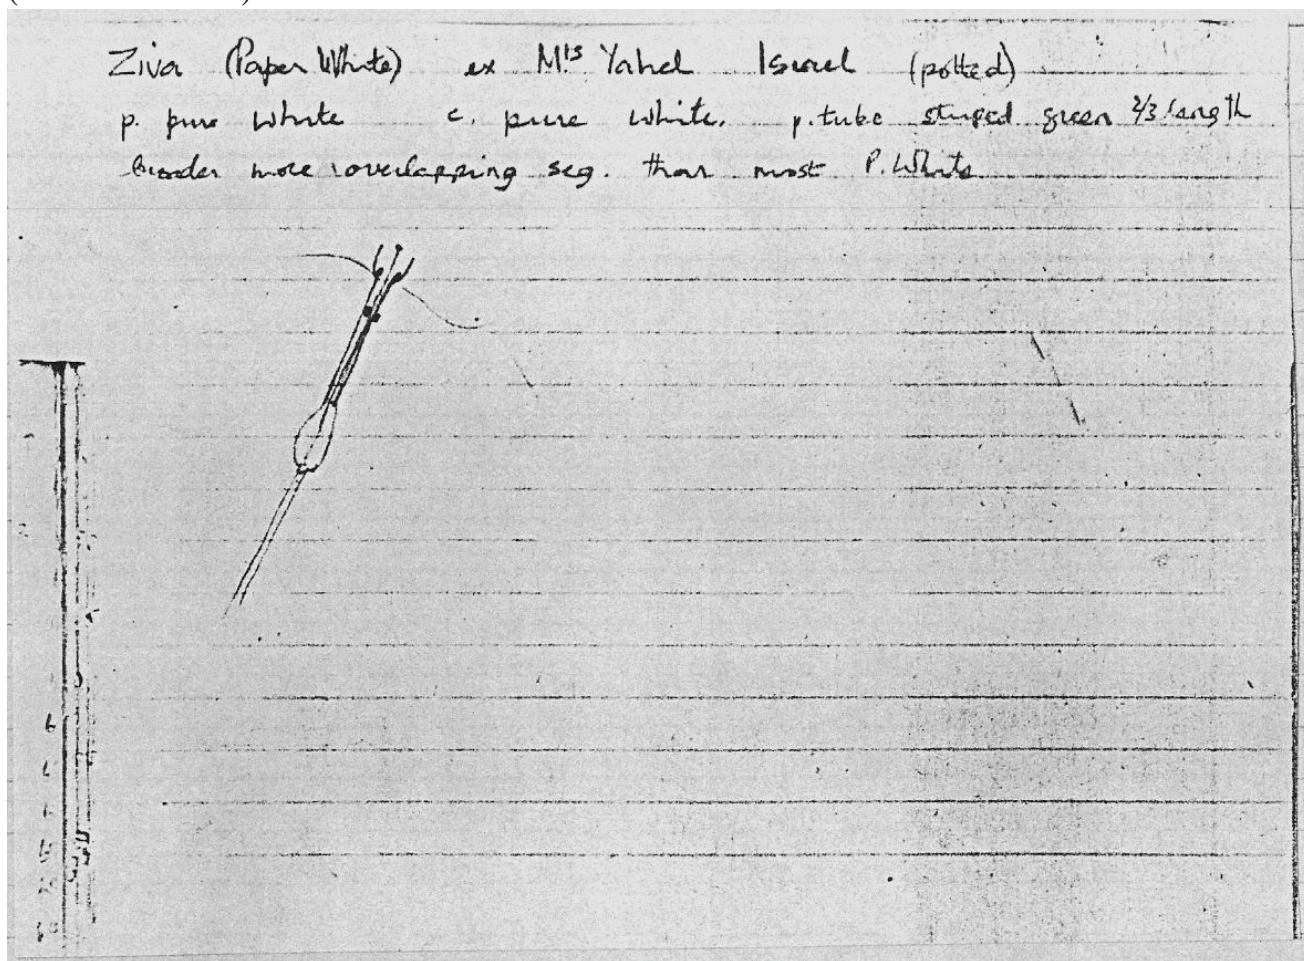 Ziva (Paper White) ex Mrs Yahel Israel (potted)
p. pure white c. pure white. p. tube striped green 2/3 length
broader more overlapping seg. than most P. White